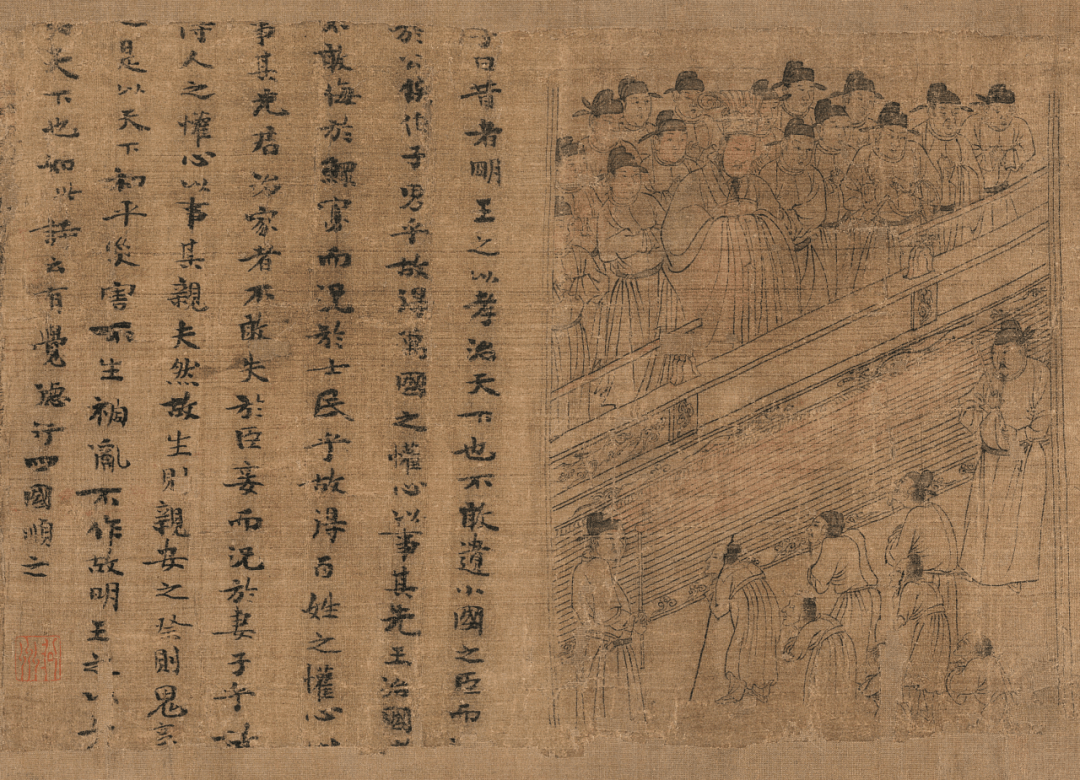 子曰昔者明王之以孝治天下也不敢遺小國之臣而
於公侯伯子男乎故得萬國之懽心以事其先王治國
不敢侮於鰥寡而況於士民乎故得百姓之懽心
事其先君治家者不敢失於臣妾而況於妻子乎故
得人之懽心以事其親夫然故生則親安之祭則鬼享
是以天下和平災害不生禍亂不作故明王之以孝
天下也如此詩云有覺德行四國順之